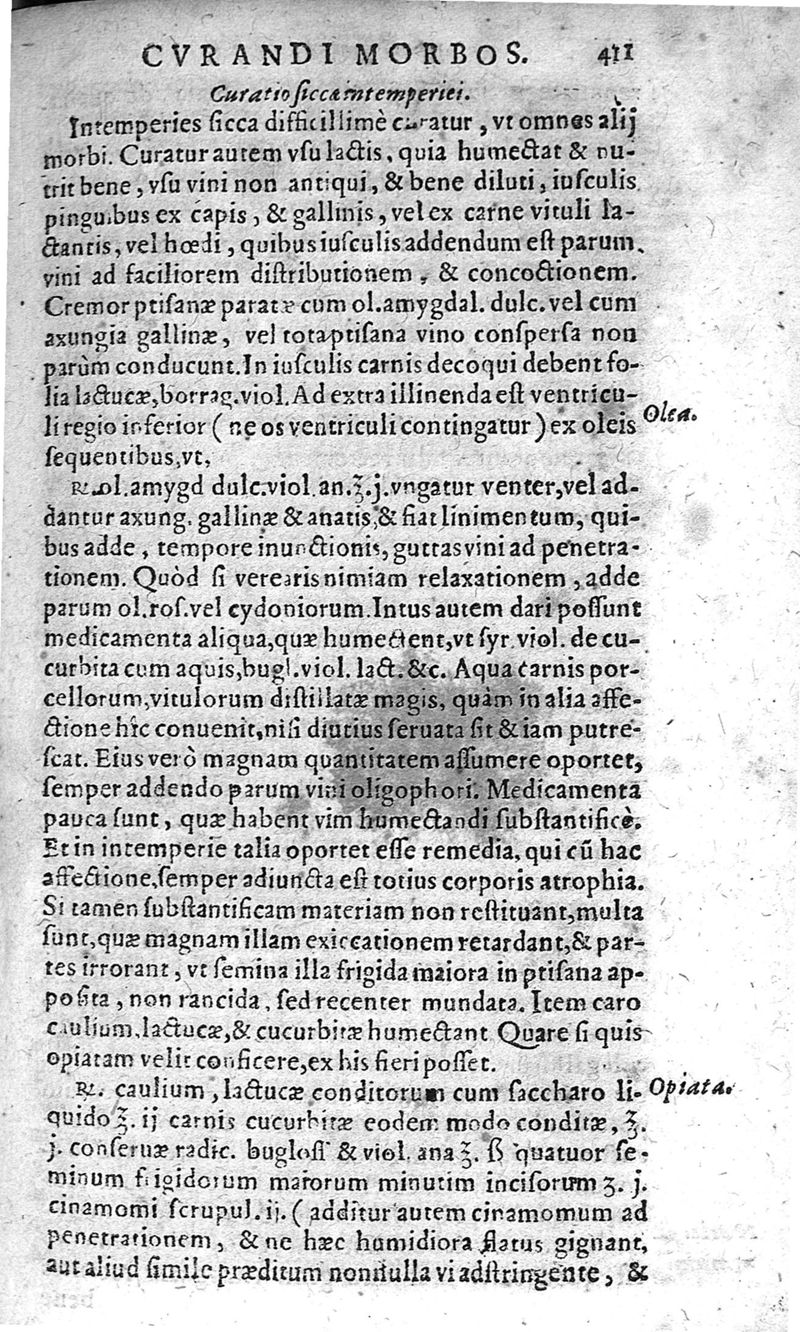 CVRANDI MORBOS. 411
Curatio siccæ intemperiei.
Intemperies ſicca difficillimè curatur, vt omnes alij
morbi. Curatur autem vſu lactis, quia humectat & nu-
trit bene, vſu vini non antiqui, & bene diluti, iuſculis
pinguibus ex capis, & gallinis, vel ex carne vituli la-
ctantis, vel hœdi, quibus iuſculis addendum eſt parum
vini ad faciliorem diſtributionem, & concoctionem.
Cremor ptiſanæ paratæ cum ol. amygdal. dulc. vel cum
axungia gallinæ, vel tota ptiſana vino conſperſa non
parùm conducunt. In iuſculis carnis decoqui debent fo-
lia lactucæ, borrag. viol. Ad extra illinenda eſt ventricu-
li regio inferior (ne os ventriculi contingatur) ex oleis
Olea.
ſequentibus, vt,
℞. ol. amygd dulc. viol. an. ℥. j. vngatur venter, vel ad-
dantur axung. gallinæ & anatis, & fiat linimentum, qui-
bus adde, tempore inunctionis, guttas vini ad penetra-
tionem. Quòd ſi verearis nimiam relaxationem, adde
parum ol. roſ. vel cydoniorum. Intus autem dari poſſunt
medicamenta aliqua, quæ humectent, vt ſyr. viol. de cu-
curbita cum aquis, bugl. viol. lact. &c. Aqua carnis por-
cellorum, vitulorum diſtillatæ magis, quàm in alia affe-
ctione hîc conuenit, niſi diutius ſeruata ſit & iam putre-
ſcat. Eius verò magnam quantitatem aſſumere oportet,
ſemper addendo parum vini oligophori. Medicamenta
pauca ſunt, quæ habent vim humectandi ſubſtantificè.
Et in intemperie talia oportet eſſe remedia, qui cū hac
affectione, ſemper adiuncta eſt totius corporis atrophia.
Si tamen ſubſtantificam materiam non reſtituant, multa
ſunt, quæ magnam illam exiccationem retardant, & par-
tes irrorant, vt ſemina illa frigida maiora in ptiſana ap-
poſita, non rancida, ſed recenter mundata. Item caro
caulium, lactucæ, & cucurbitæ humectant. Quare ſi quis
opiatam velit conficere, ex his fieri poſſet.
℞. caulium, lactucæ conditorum cum ſaccharo li-
Opiata.
quido ℥. ij carnis cucurbitæ eodem modo conditæ, ℥.
j. conſeruæ radic. bugloſſ & viol. ana ℥. ß quatuor ſe-
minum frigidorum maiorum minutim inciſorum ʒ. j.
cinamomi ſcrupul. ij. (additur autem cinamomum ad
penetrationem, & ne hæc humidiora flatus gignant,
aut aliud ſimile præditum nonnulla vi adſtringente, &